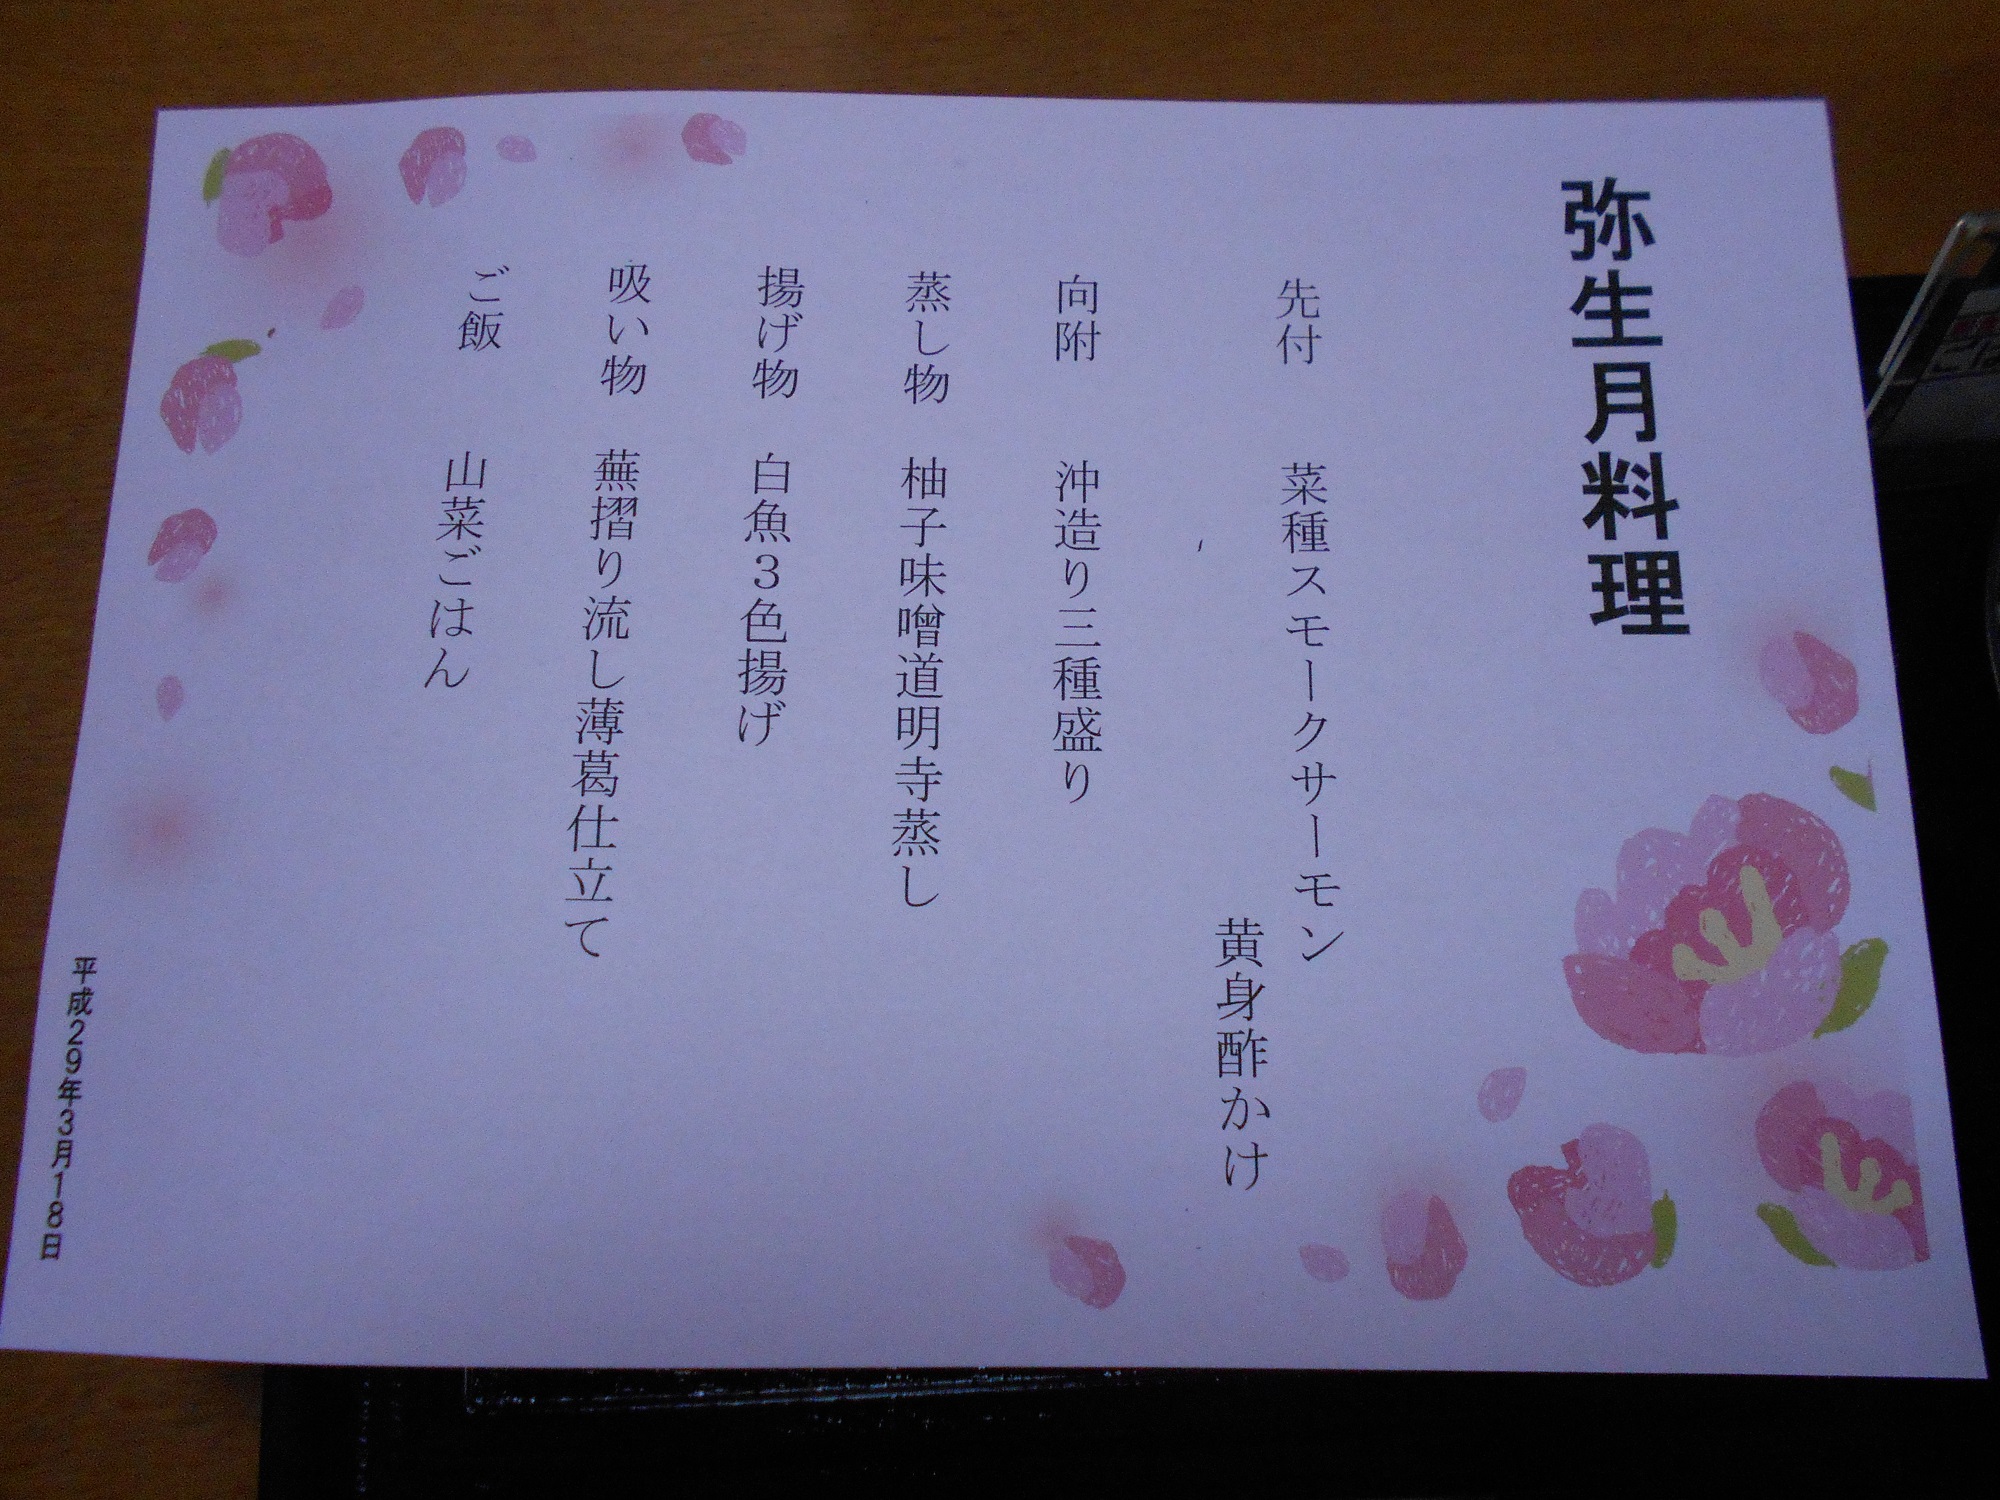 弥生月料理
先付 菜種スモークサーモン
黄身酢かけ
向附 沖造り三種盛り
蒸し物 柚子味噌道明寺蒸し
揚げ物 白魚3色揚げ
吸い物 蕪摺り流し薄葛仕立て
ご飯 山菜ごはん
平成29年3月18日